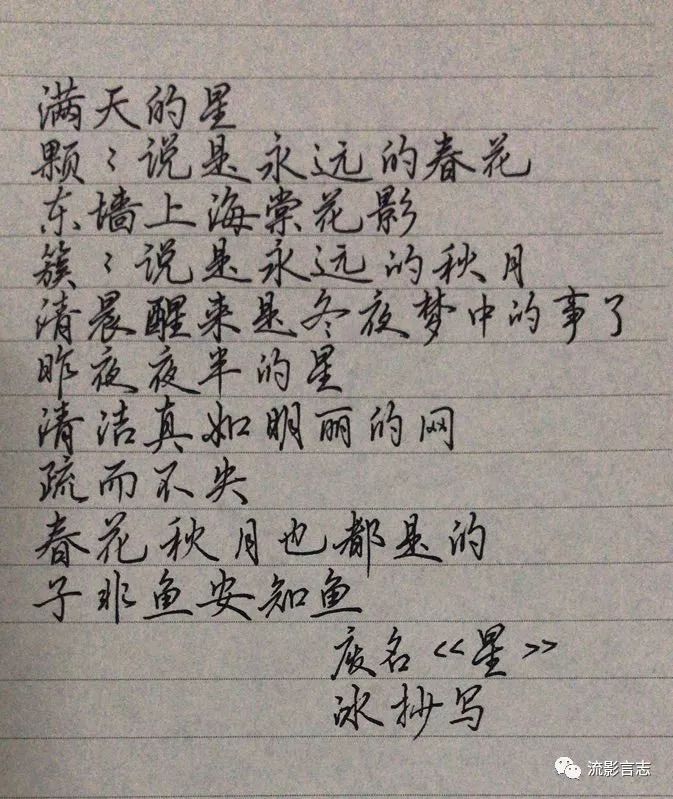 满天的星
颗々说是永远的春花
东墙上海棠花影
簇々说是永远的秋月
清晨醒来是冬夜梦中的事了
昨夜夜半的星
清洁真如明丽的网
疏而不失
春花秋月也都是的
子非鱼安知鱼
废名《星》
冰抄写
流影言志